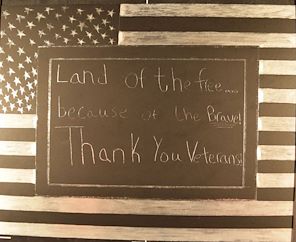 Land of the free...
because of the Brave!
Thank You Veterans!